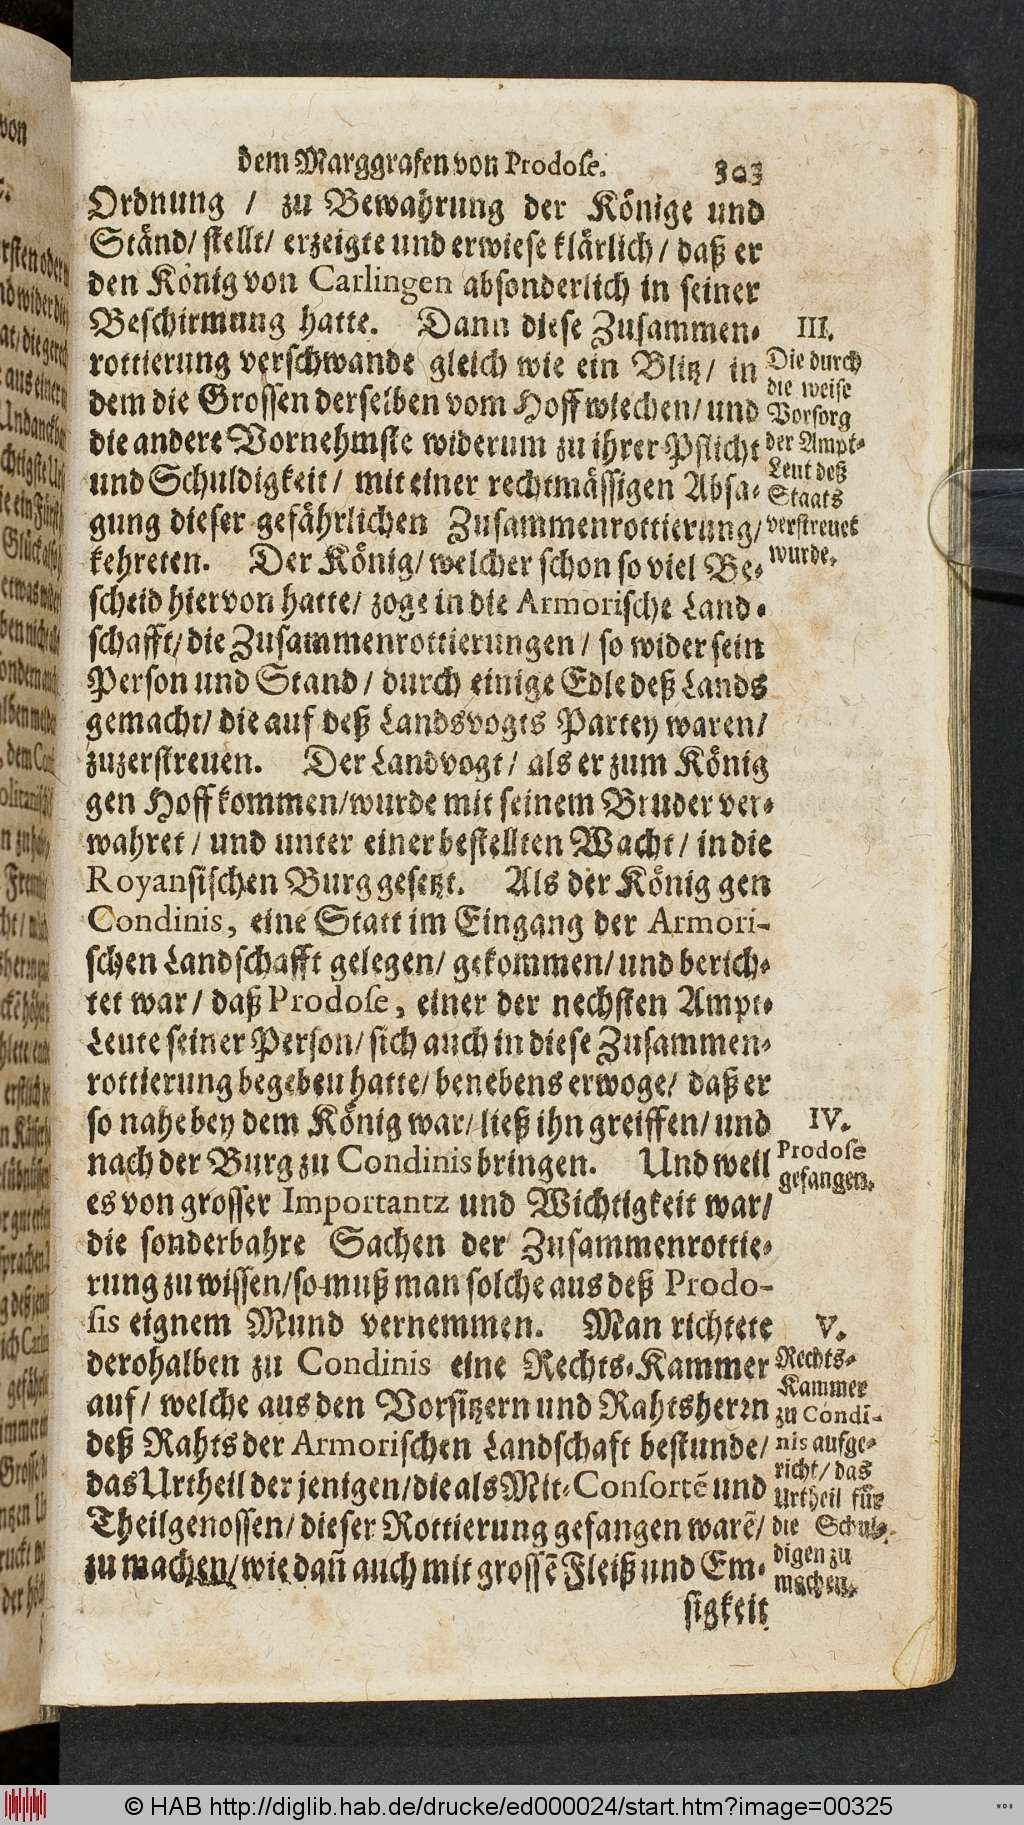 dem Marggrafen von Prodose. 303
Ordnung / zu Bewahrung der Könige und
Ständ/ stellt/ erzeigte und erwiese klärlich/ daß er
den König von Carlingen absonderlich in seiner
Beschirmung hatte. Dann diese Zusammen-
rottierung verschwande gleich wie ein Blitz/ in
dem die Grossen derselben vom Hoff wiechen/ und
die andere Vornehmste widerum zu ihrer Pflicht
und Schuldigkeit/ mit einer rechtmässigen Absa-
gung dieser gefährlichen Zusammenrottierung/
kehreten. Der König/ welcher schon so viel Be-
scheid hiervon hatte/ zoge in die Armorische Land-
schafft/ die Zusammenrottierungen/ so wider sein
Person und Stand / durch einige Edle deß Lands
gemacht/ die auf deß Landsvogts Partey waren/
zuzerstreuen. Der Landvogt/ als er zum König
gen Hoff kommen/wurde mit seinem Bruder ver-
wahret / und unter einer bestellten Wacht / in die
Royansischen Burg gesetzt. Als der König gen
Condinis, eine Statt im Eingang der Armori-
schen Landschafft gelegen/ gekommen/ und berich-
tet war / daß Prodose, einer der nechsten Ampt-
Leute seiner Person/ sich auch in diese Zusammen-
rottierung begeben hatte/ benebens erwoge/ daß er
so nahe bey dem König war/ ließ ihn greiffen/ und
nach der Burg zu Condinis bringen. Und weil
es von grosser Importantz und Wichtigkeit war/
die sonderbahre Sachen der Zusammenrottie-
rung zu wissen/so muß man solche aus deß Prodo-
sis eignem Mund vernemmen. Man richtete
derohalben zu Condinis eine Rechts-Kammer
auf/ welche aus den Vorsitzern und Rahtsherrn
deß Rahts der Armorischen Landschaft bestunde/
das Urtheil der jenigen/die als Mit-Consortẽ und
Theilgenossen/ dieser Rottierung gefangen warẽ/
zu machen/ wie dañ auch mit grossẽ Fleiß und Em-
sigkeit
III.
Die durch
die weise
Vorsorg
der Ampt-
Leut deß
Staats
verstreuet
wurde.
IV.
Prodose
gefangen.
V.
Rechts-
Kammer
zu Condi-
nis aufge-
richt/ das
Urtheil für
die Schul-
digen zu
machen.
© HAB http://diglib.hab.de/drucke/ed000024/start.htm?image=00325